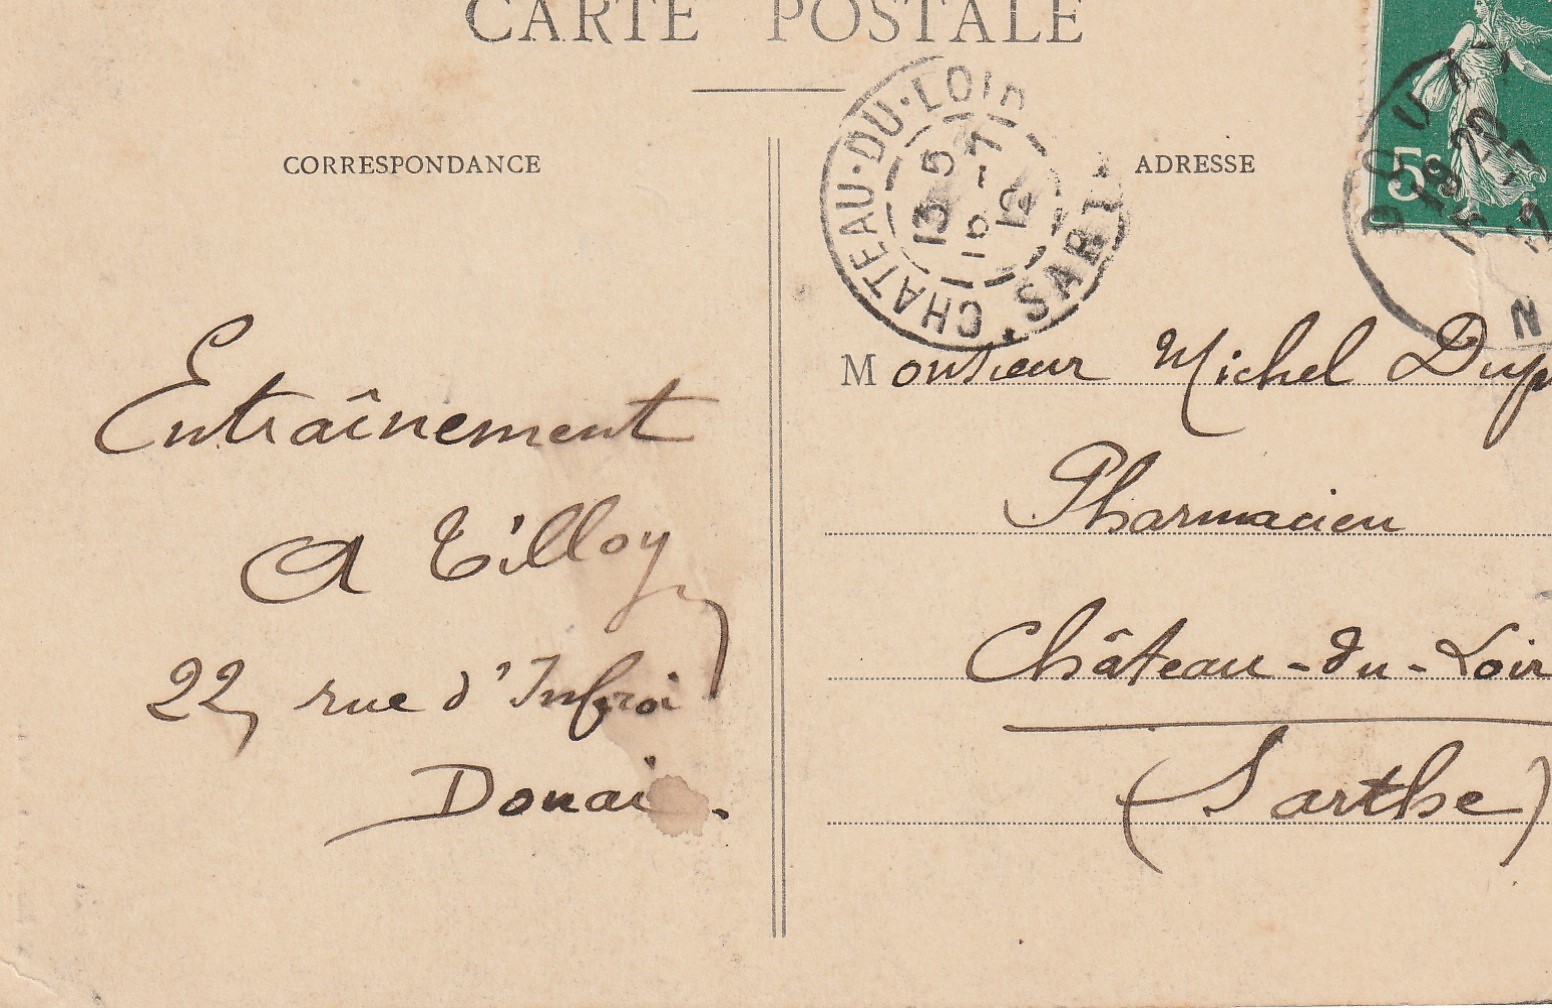 CARTE POSTALE
CORRESPONDANCE
ADRESSE
CHATEAU-DU-LOIR
SART
13 5
7
12
DOUAI
5c
N
Entraînement
A Tilloy
22, rue d'Infroi
Douai.
Monsieur Michel
Pharmacien
Château-du-Loir
(Sarthe)